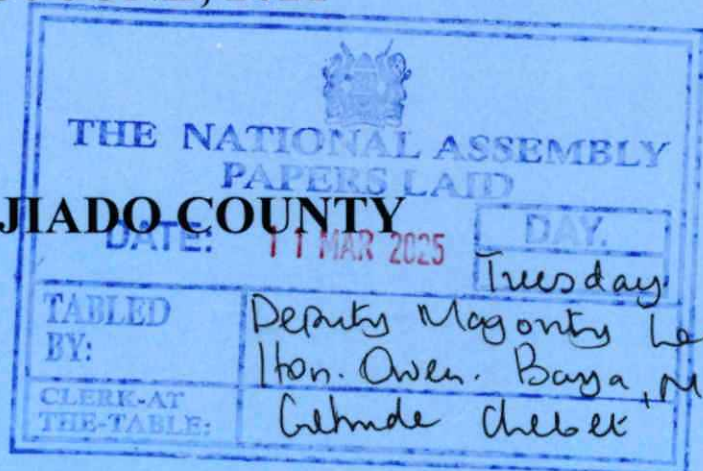 THE NATIONAL ASSEMBLY
PAPERS LAID
JIADO COUNTY
DATE: 11 MAR 2025 DAY.
Tuesday
TABLED BY: Deputy Majority Le
Hon. Owen. Baya, M
CLERK-AT THE-TABLE: Getrude Chebet